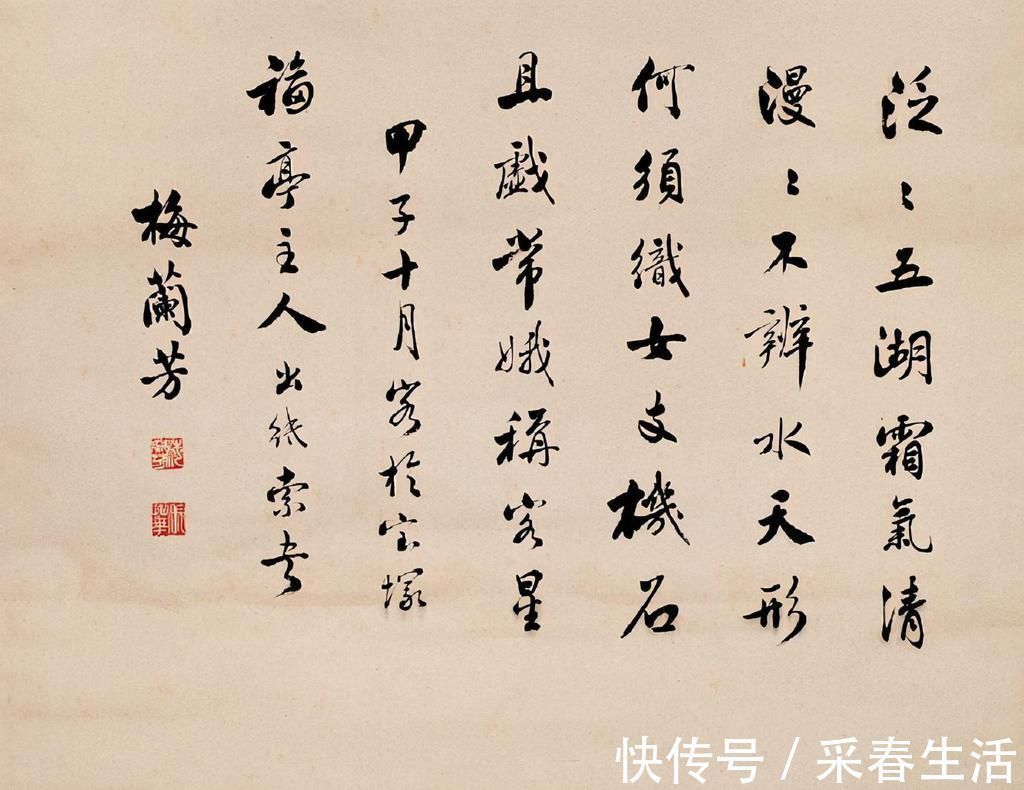 泛〻五湖霜氣清
漫〻不辨水天形
何須織女支機石
且戲常娥稱客星
甲子十月客於宝塚
福亭主人出紙索書
梅蘭芳
快传号 / 采春生活